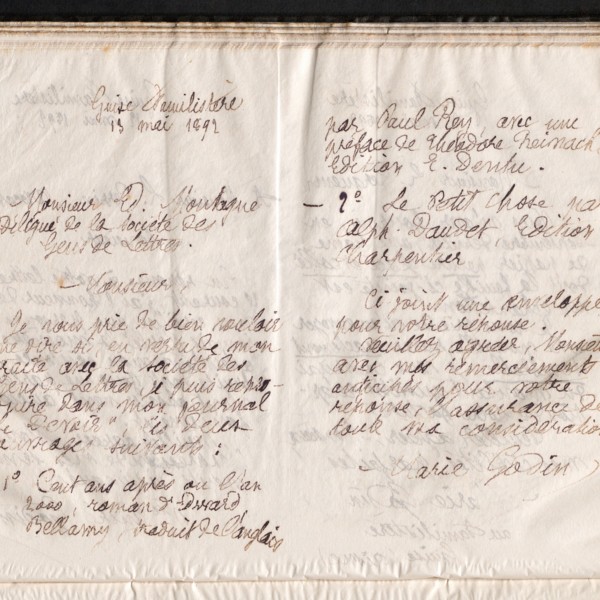 Guise Familistère
13 mai 1892
Monsieur Ed. Montagne
Délégué de la Société des
Gens de Lettres.
Monsieur
Je vous prie de bien vouloir
me dire si en vertu de mon
traité avec la Société des
Gens de Lettres, je puis repro-
duire dans mon journal
"Le Devoir" les deux
ouvrages suivants :
1º Cent ans après ou l'an
2000, roman d'Edward
Bellamy, traduit de l'anglais
par Paul Rey, avec une
préface de Théodore Reinach,
Edition E. Dentu.
- 2º Le Petit Chose par
Alph. Daudet, Edition
Charpentier
Ci joint une enveloppe
pour votre réponse.
Veuillez agréer, Monsieur
avec mes remerciements
anticipés pour votre
réponse, l'assurance de
toute ma considération
Marie Godin